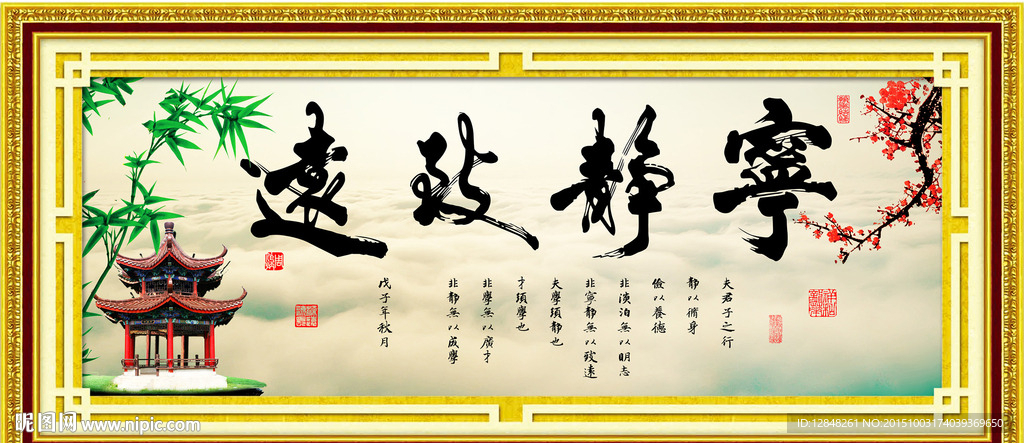 寧静致遠
夫君子之行
静以脩身
儉以養德
非淡泊無以明志
非寧静無以致遠
夫學須静也
才須學也
非學無以廣才
非静無以成學
戊子年秋月
昵图网 www.nipic.com
ID:12848261 NO:20151003174039369650